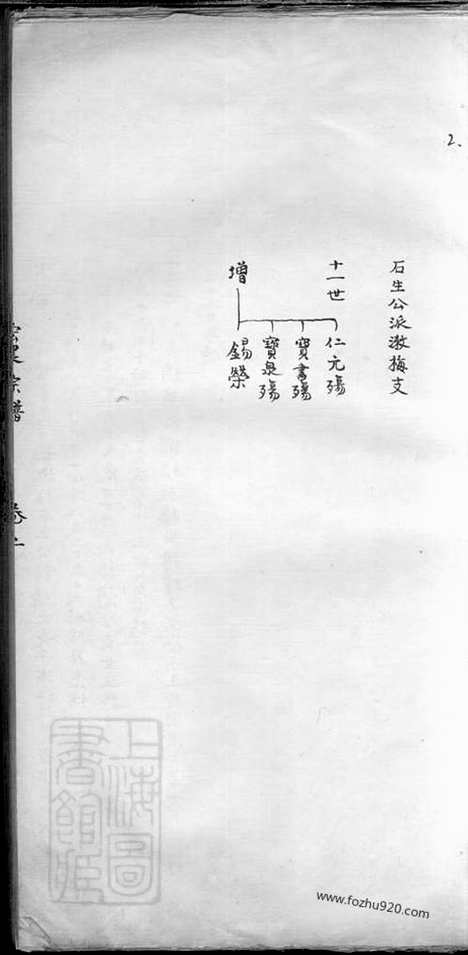 2、
石生公派漱梅支
十一世
仁元殤
寶書殤
寶泉殤
增
錫榮
宗譜
卷上
上海圖書館藏
www.fozhu920.com